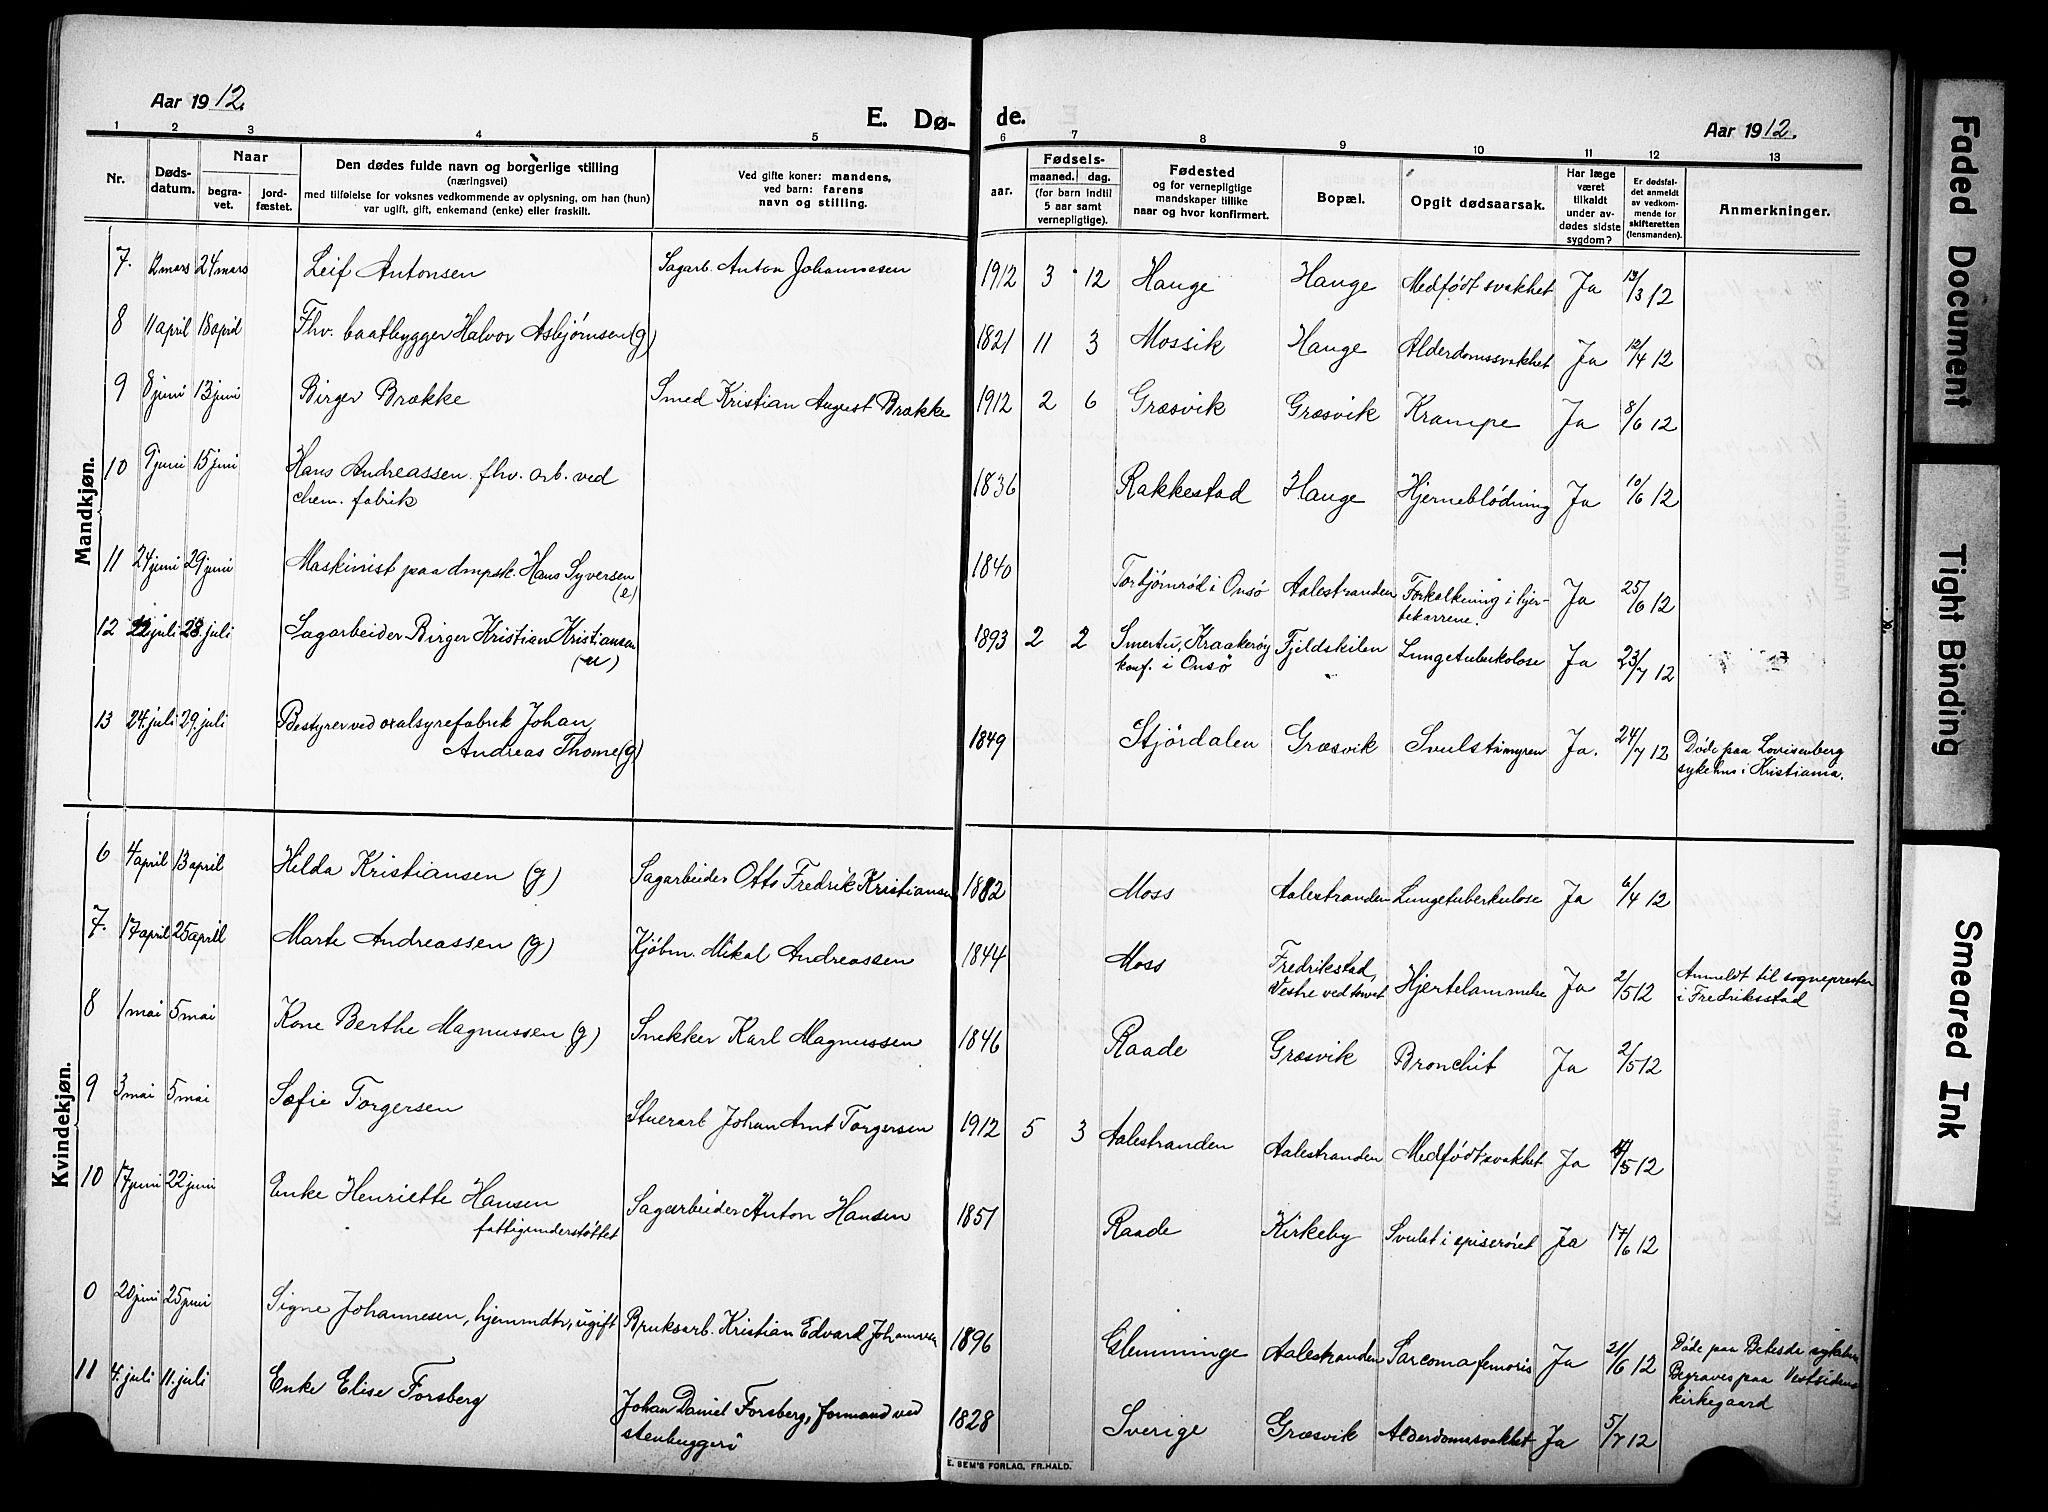 Aar 1912.
E. Dø- de.
Aar 1912.
1 2 3 4 5 6 7 8 9 10 11 12 13
Nr.
Døds-
datum.
Naar
begra-
vet.
jord-
fæstet.
Den dødes fulde navn og borgerlige stilling
(næringsvei)
med tilføielse for voksnes vedkommende av oplysning, om han (hun)
var ugift, gift, enkemand (enke) eller fraskilt.
Ved gifte koner: mandens,
ved barn: farens
navn og stilling.
Fødsels-
aar. maaned. dag.
(for barn indtil
5 aar samt
vernepligtige).
Fødested
og for vernepligtige
mandskaper tillike
naar og hvor konfirmert.
Bopæl.
Opgit dødsaarsak.
Har læge
været
tilkaldt
under av-
dødes sidste
sygdom?
Er dødsfal-
det anmeldt
av vedkom-
mende for
skifteretten
(lensmanden).
Anmerkninger.
Mandkjøn.
7. 12 mars 24 mars Leif Antonsen Sagarb. Anton Johannesen 1912 3 12 Hauge Hauge Medfødt svakhet Ja 13/3 12
8 11 april 18 april Fhv. baatbygger Halvor Asbjørnsen (g) 1821 11 3 Mossik Hauge Alderdomssvakhet Ja 12/4 12
9 8 juni 13 juni Birger Brække Smed Kristian August Brække 1912 2 6 Græsvik Græsvik Krampe Ja 8/6 12
10 9 juni 15 juni Hans Andreassen fhv. arb. ved
chem. fabrik 1836 Rakkestad Hauge Hjerneblödning Ja 10/6 12
11 24 juni 29 juni Maskinist paa dmpsk. Hans Syversen
(e) 1840 Torbjørnrød i Onsø Aalestranden Forkalkning i hjer-
tekarrene. Ja 25/6 12
12 22 juli 28 juli Sagarbeider Birger Kristian Kristiansen
(u) 1893 2 2 Smertu, Kraakerøy
konf. i Onsö Fjeldskilen Lungetuberkolose Ja 23/7 12
13 24. juli 29. juli Bestyrer ved oxalsyrefabrik Johan
Andreas Thome (g) 1849 Stjördalen Græsvik Svulst i myren Ja. 24/7 12 Døde paa Lovisenberg
sykehus i Kristiania.
Kvindekjøn.
6 4 april 13 april Hilda Kristiansen (g) Sagarbeider Otto Fredrik Kristiansen 1882 Moss Aalestranden Lungetuberkulose Ja 6/4 12
7. 17 april 25 april Marte Andreassen (g) Kjøbm. Mikal Andreassen 1844 Moss Fredrikstad,
Vestre ved torvet Hjertelammelse Ja 2/5 12 Anmeldt til sognepresten
i Fredriksstad
8 1 mai 5 mai Kone Berthe Magnussen (g) Snekker Karl Magnussen 1846 Raade Græsvik Bronchit Ja 2/5 12
9 3 mai 5 mai Sofie Torgersen Stuerarb Johan Arnt Torgersen 1912 5 3 Aalestranden Aalestranden Medfödt svakhet Ja /5 12
10 17 juni 22 juni Enke Henriette Hansen
fattigunderstøttet Sagarbeider Anton Hansen 1851 Raade Kirkeby Svulst i spiserøret Ja 17/6 12
0 20 juni 25 juni Signe Johannesen, hjemmdtr, ugift Bruksarb. Kristian Edvard Johannesen 1896 Glemminge Aalestranden Sarcoma femoris Ja 21/6 12 Døde paa Betesda sykehus
Begraves paa Vestsidens
kirkegaard
11 4. juli 11. juli Enke Elise Forsberg Johan Daniel Forsberg, formand ved
stenhuggeri 1828 Sverige Græsvik Alderdomssvakhet Ja 5/7 12
E. SEM'S FORLAG, FR.HALD.
Faded Document
Tight Binding
Smeared Ink